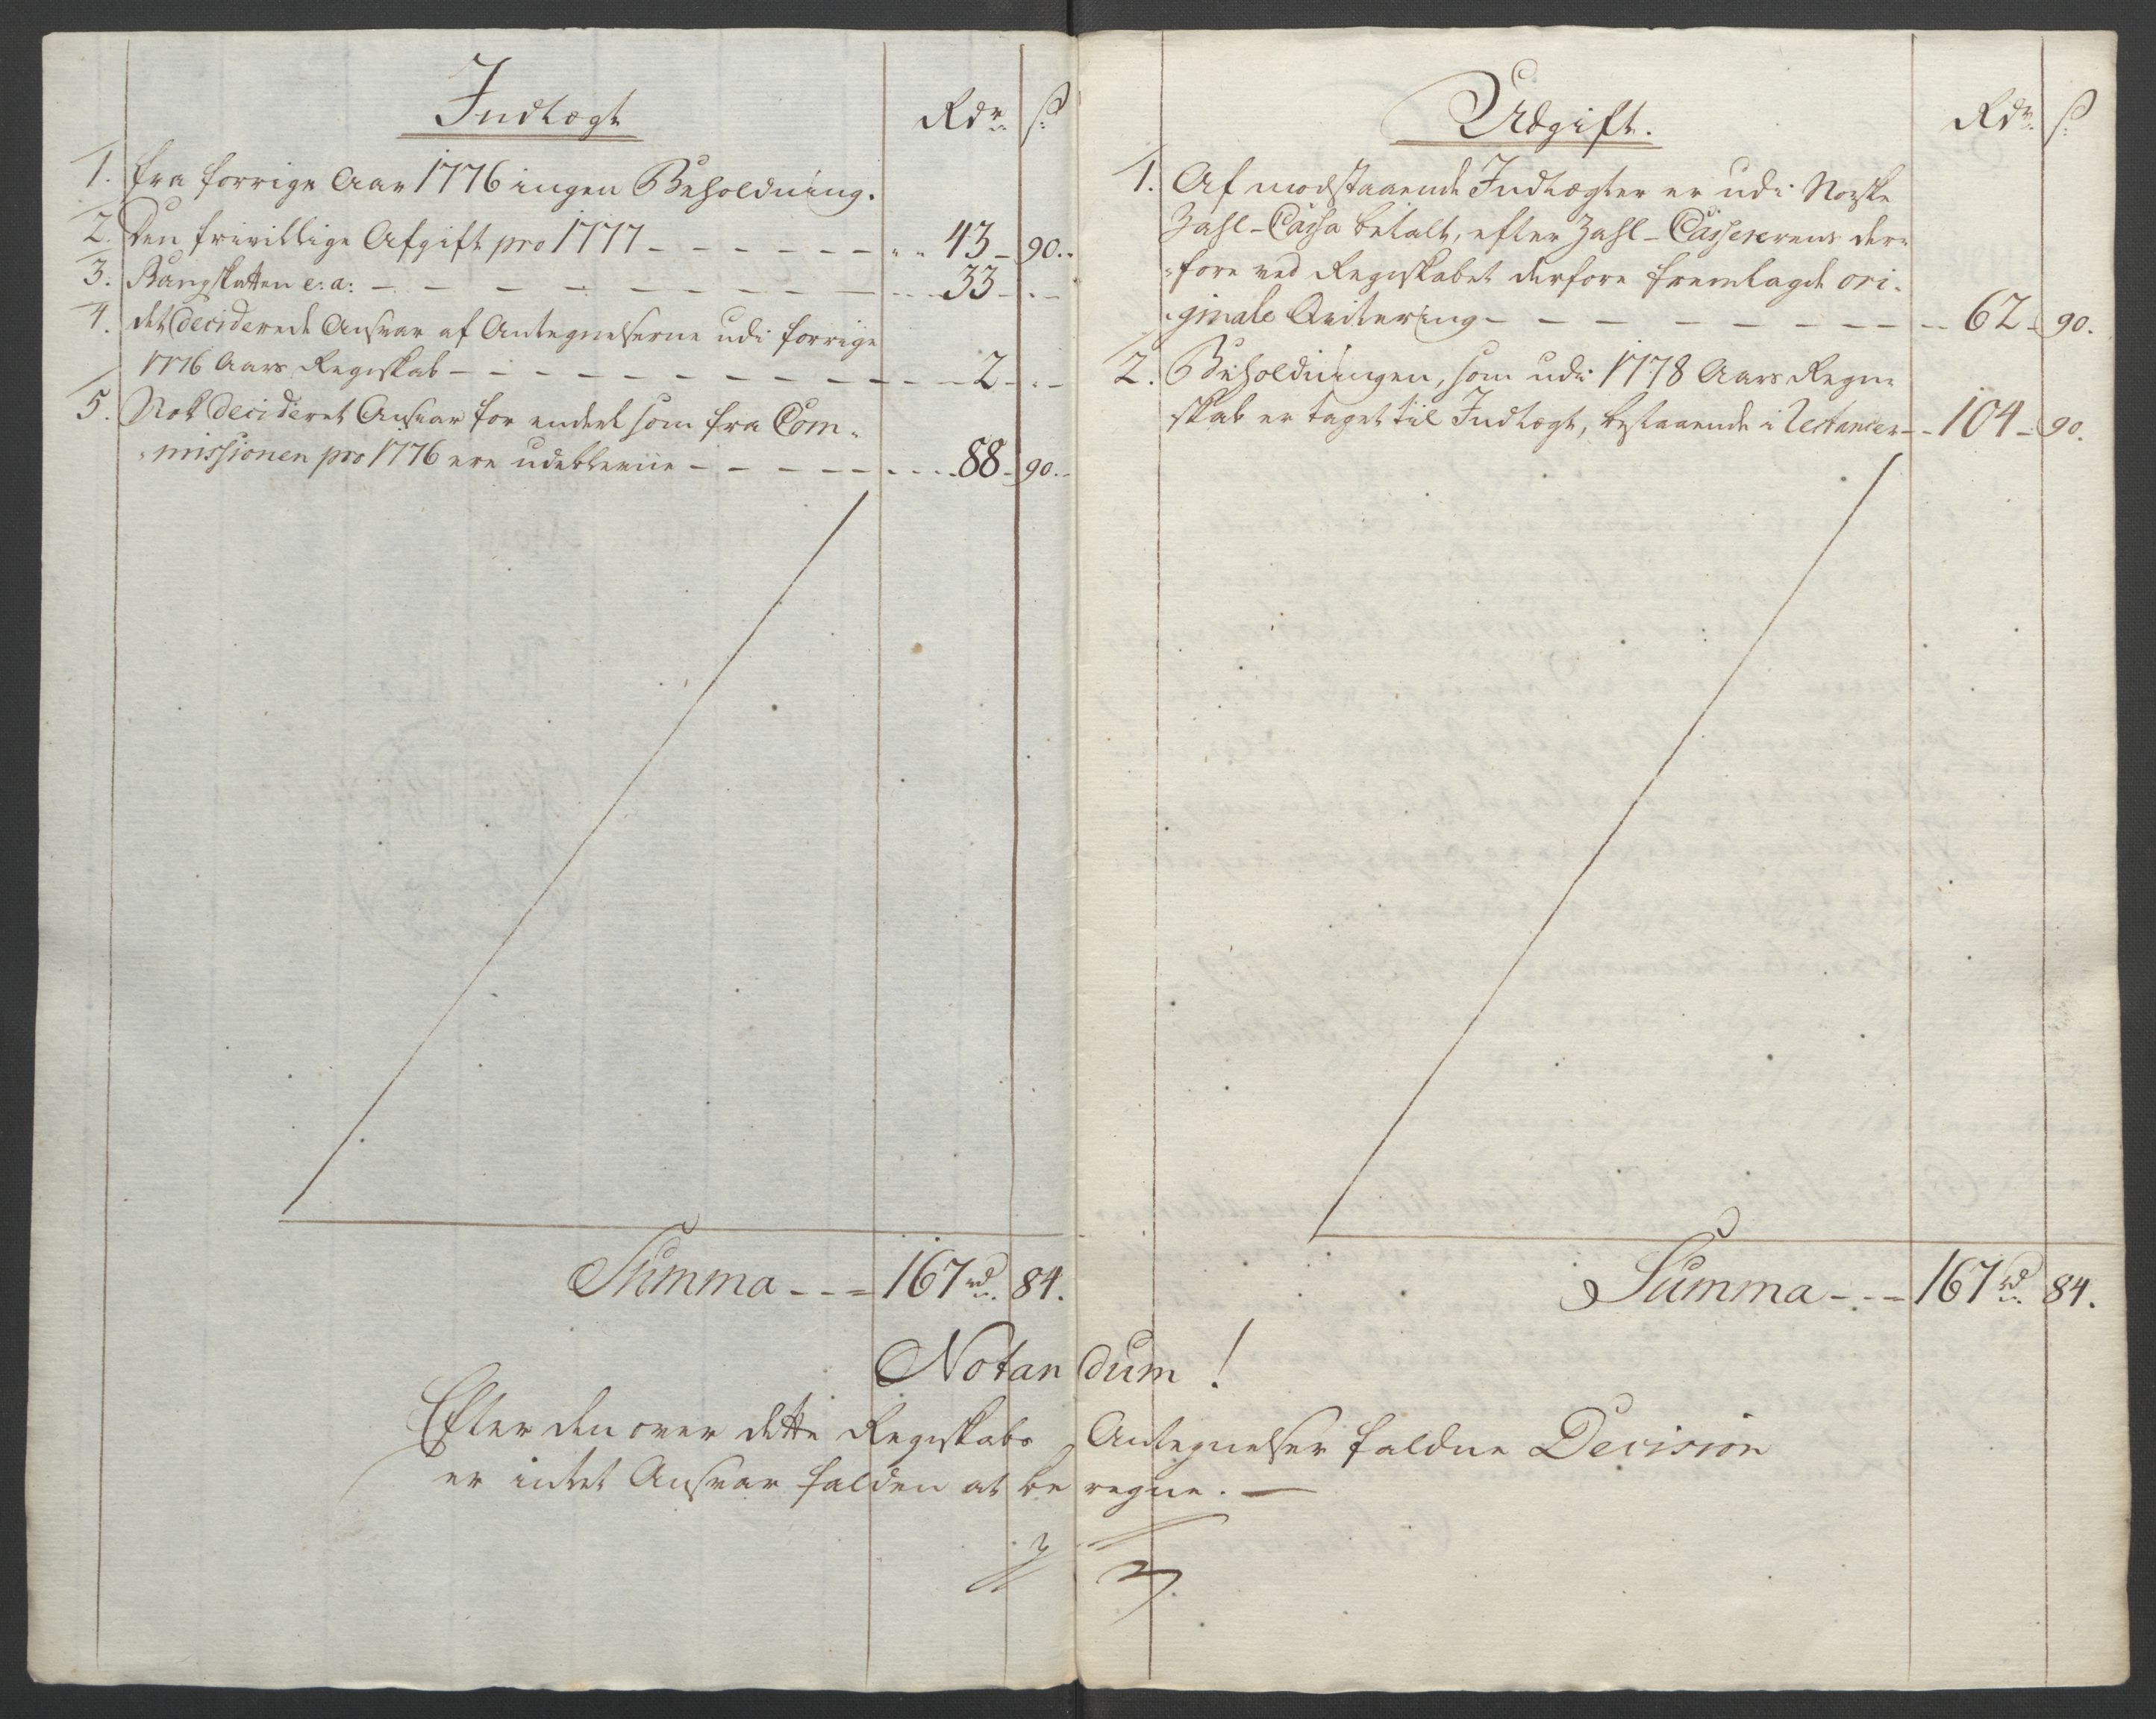 Indtægt
Rdr. ß
1. fra forrige Aar 1776 ingen Beholdning.
2. Den frivillige Afgift pro 1777 - - - - - - 43 - 90.
3. Rangskatten e: a: - - - - - - - - 33 - -
4. det deciderede Ansvar af Antegnelserne udi forrige
1776 Aars Regnskab - - - - - - - - - 2 - -
5. Nok decideret Ansvar for endeel som fra Com-
missionen pro 1776 ere udeblevne - - - - - 88 - 90.
Summa - - = 167 rd. 84.
Udgift.
Rdr. ß
1. Af modstaaende Indtægter er udi Norske
Zahl-Cassa betalt, efter Zahl-Casserernes der-
fore ved Regnskabet derfore fremlagde ori-
ginale Qvitering - - - - - - - - 62 - 90.
2. Beholdningen, som udi 1778 Aars Regn-
skab er taget til Indtægt, bestaaende i Restancer - - 104 - 90.
Summa - - - 167 rd. 84.
Notandum!
Efter den over dette Regnskabs Antegnelser faldne Decision
er intet Ansvar falden at beregne. -